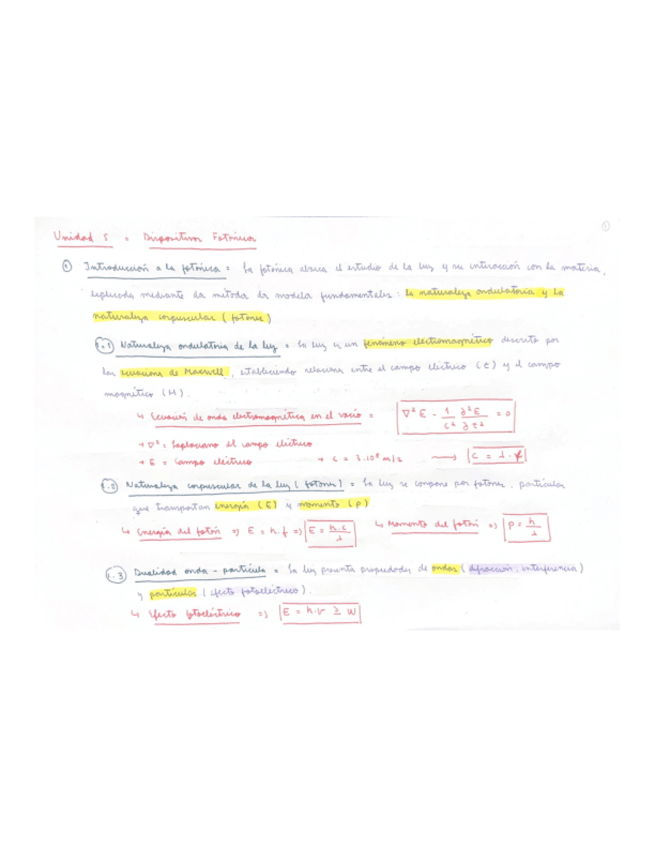 ①
Unidad 5 = Dispositivos Fotónicos
① Introducción a la fotónica = La fotónica abarca el estudio de la luz y su interacción con la materia,
explicada mediante modelos fundamentales: la naturaleza ondulatoria y la
naturaleza corpuscular (fotones)
1.1 Naturaleza ondulatoria de la luz = La luz es un fenómeno electromagnético descrito por
las ecuaciones de Maxwell, estableciendo relaciones entre el campo eléctrico (E) y el campo
magnético (H).
↳ Ecuación de onda electromagnética en el vacío = ∇²E - 1/c² ∂²E/∂t² = 0
→ ∇² = Laplaciano del campo eléctrico
→ E = Campo eléctrico → c = 3·10⁸ m/s ⟶ c = λ·f
1.2 Naturaleza corpuscular de la luz (fotones) = La luz se compone por fotones, partículas
que transportan energía (E) y momento (p)
↳ Energía del fotón => E = h·f => E = h·c/λ ↳ Momento del fotón => p = h/λ
1.3 Dualidad onda - partícula = La luz presenta propiedades de ondas (difracción, interferencia)
y partículas (efecto fotoeléctrico).
↳ Efecto fotoeléctrico => E = h·ν ≥ W